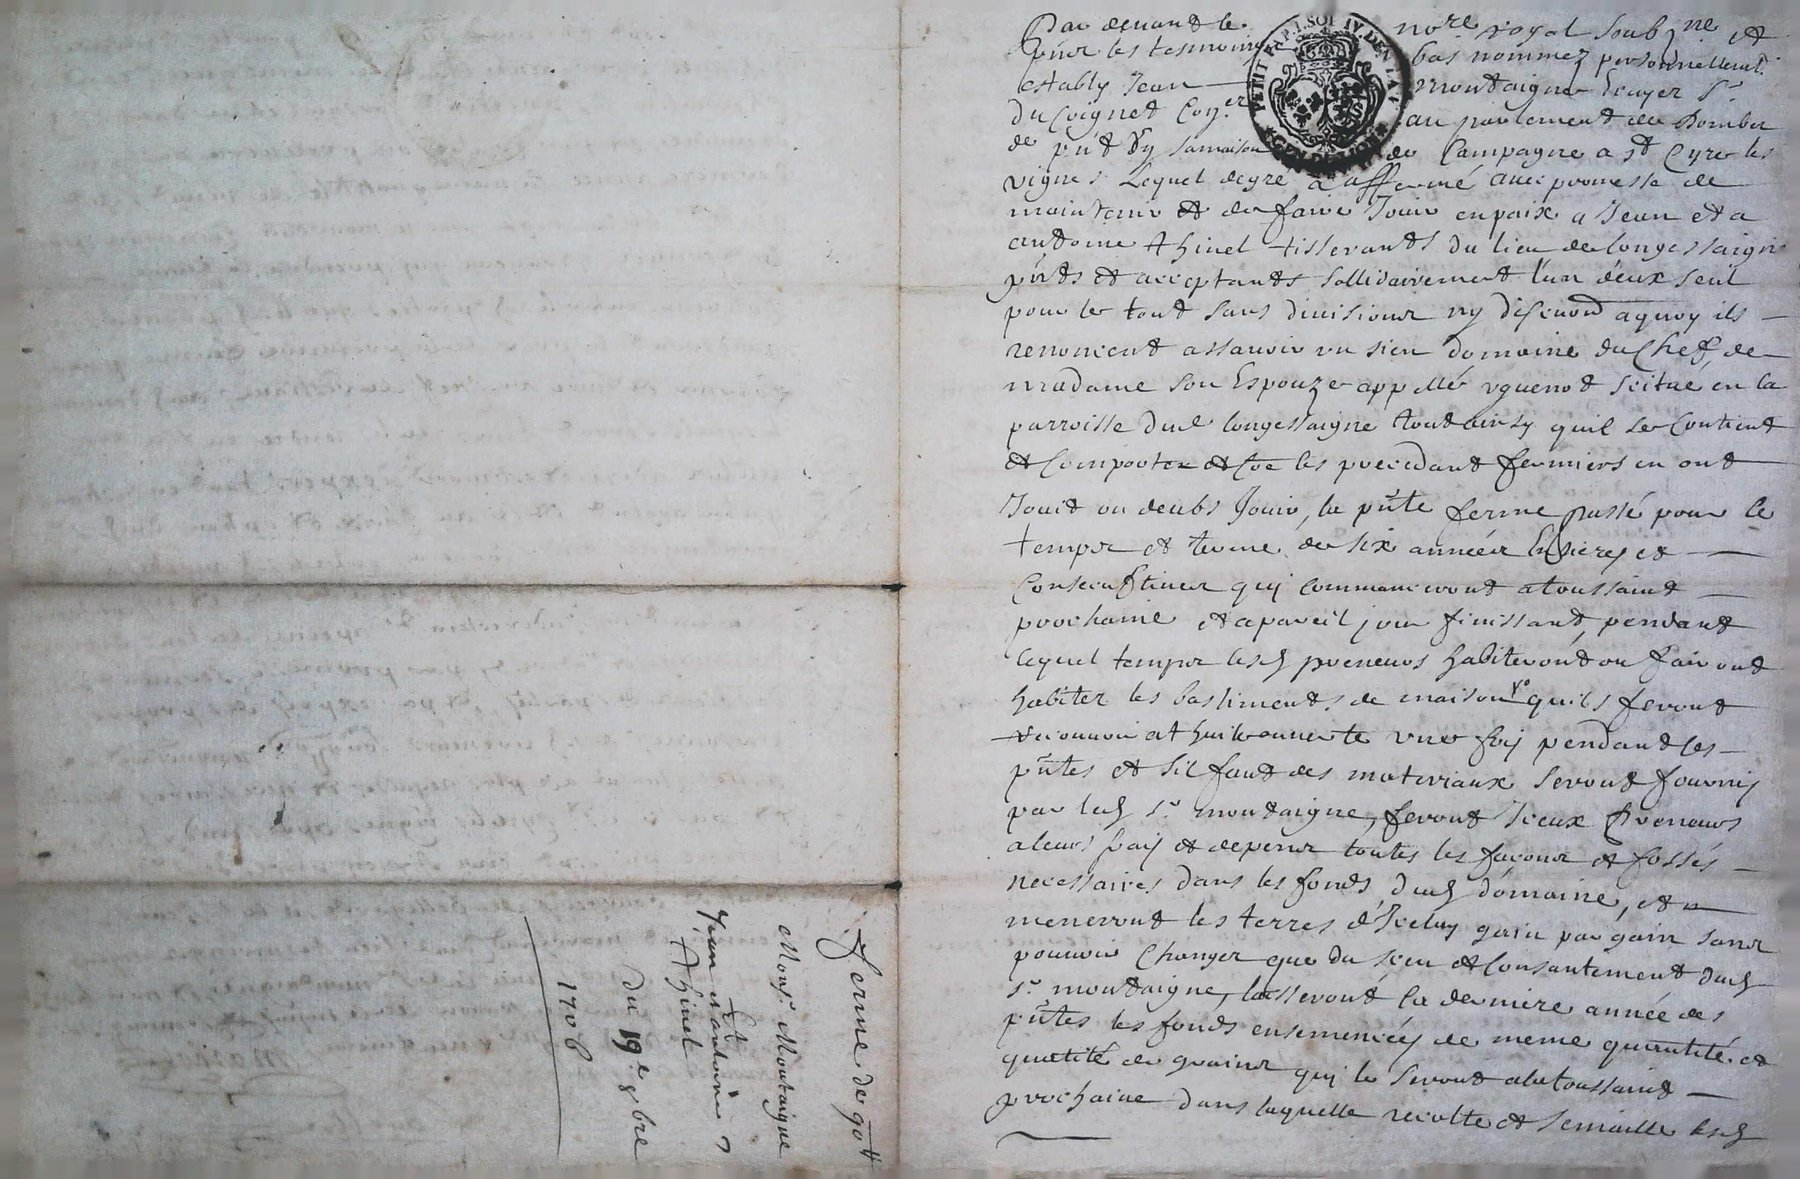 Par devant le no.re royal soub.ne et
pnt les tesmoings bas nommez personnellemt.
estably Jean montaigne Ecuyer Sr
Du Coignet Con.er au parlement de Dombes
de pnt Ey sa maison de Campagne a st Cyre les
vignes Lequel de gré a affermé avec promesse de
maintenir et de faire Jouir en paix a Jean et a
antoine thinel tisserands du lieu de longessaigne
pnts et acceptants sollidairement l'un d'eux seul
pour le tout sans divisions ny discution a quoy ils
renoncent assavoir un sien domaine du Chef de
madame son Espouze appellé uguenot scitué en la
parroisse dud longessaigne tout ainsy quil se Contient
et Comporte et Coe les precedant fermiers en ont
Jouit ou deubs Jouir, la pnte ferme passé pour le
temps et terme de six années Entieres et
Consecutives qui commanceront a toussaint
prochaine et a pareil jour finissant, pendant
lequel temps lesd preneurs habiteront ou fairont
habiter les bastiments de maison quils feront
recouvrir a thuile ouverte une fois pendant les
pntes et sil faut des materiaux seront fournis
par led sr montaigne, feront Iceux preneurs
a leurs frais et depens toutes les façons et fossés
necessaires dans les fonds dud domaine, et
meneront les terres d'Iceluy gain par gain sans
pouvoir Changer que du sceu et Consantement dud
sr montaigne, laisseront la derniere année des
pntes les fonds ensemencés de meme quantité et
qualité de grains qui le seront a la toussaint
prochaine dans laquelle recolte et semaille lesd
PETIT PAP. 1.SOL IV. DEN. LA F.
GEN. DE LION
ferme de 90tt
Mons.r Montaigne
Jean et antoine
Thinel
du 19.e 8bre
1706